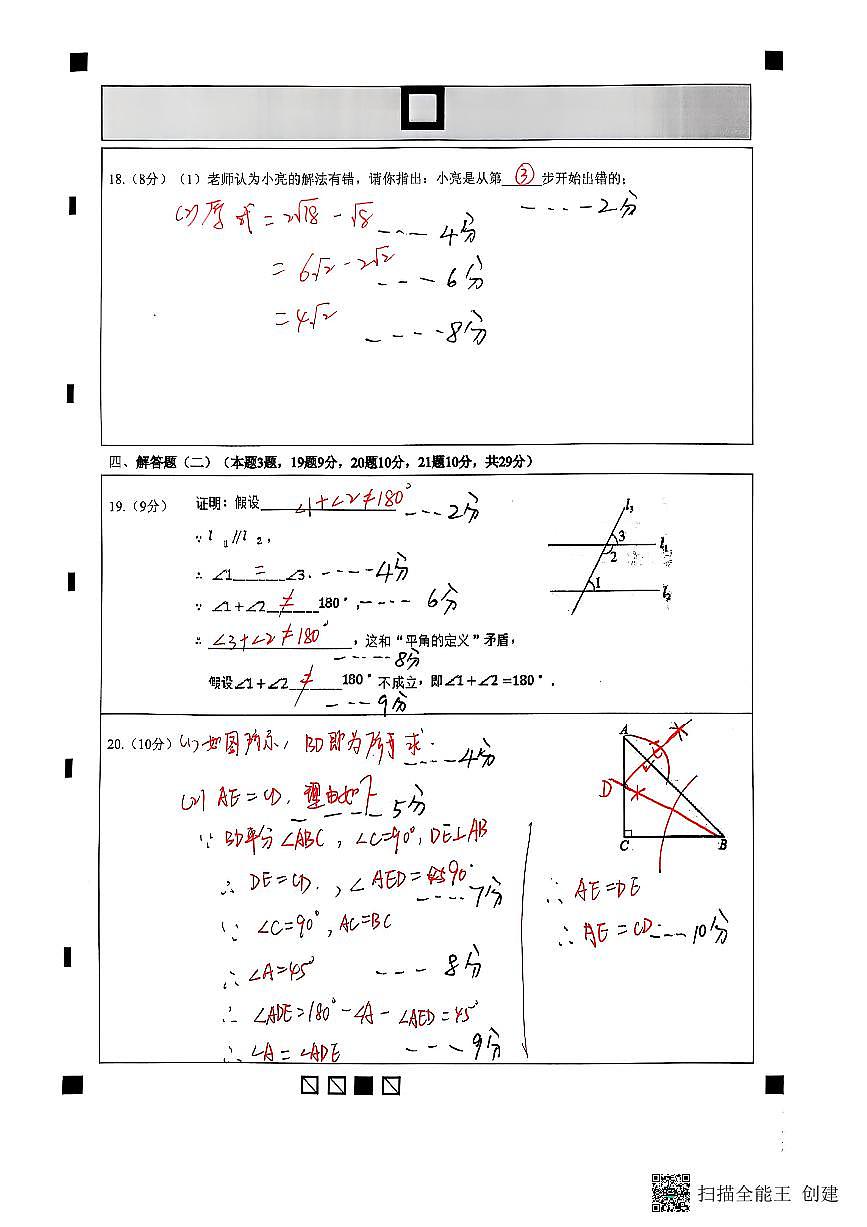 18.（8分）（1）老师认为小亮的解法有错，请你指出：小亮是从第 ③ 步开始出错的；
----2分
(2)原式=2√18-√8 ----4分
=6√2-2√2 ---6分
=4√2 ----8分
四、解答题（二）（本题3题，19题9分，20题10分，21题10分，共29分）
19.（9分） 证明：假设 ∠1+∠2≠180° ---2分
∵ l 1//l 2，
∴ ∠1 = ∠3. ----4分
∵ ∠1+∠2 ≠ 180°，---- 6分
∴ ∠3+∠2≠180° ，这和“平角的定义”矛盾，
----8分
假设∠1+∠2 ≠ 180°不成立，即∠1+∠2=180°．
---9分
l3
3
l1
2
1
l2
20.（10分）(1)如图所示，BD即为所求. ----4分
(2) AE=CD，理由如下 ----5分
∵ BD平分∠ABC，∠C=90°，DE⊥AB
∴ DE=CD，∠AED=90°
----7分
∵ ∠C=90°，AC=BC
∴ ∠A=45° ---8分
∴ ∠ADE=180°-∠A-∠AED=45°
∴ ∠A=∠ADE ---9分
A
E
D
C
B
∴ AE=DE
∴ AE=CD ---10分
扫描全能王 创建